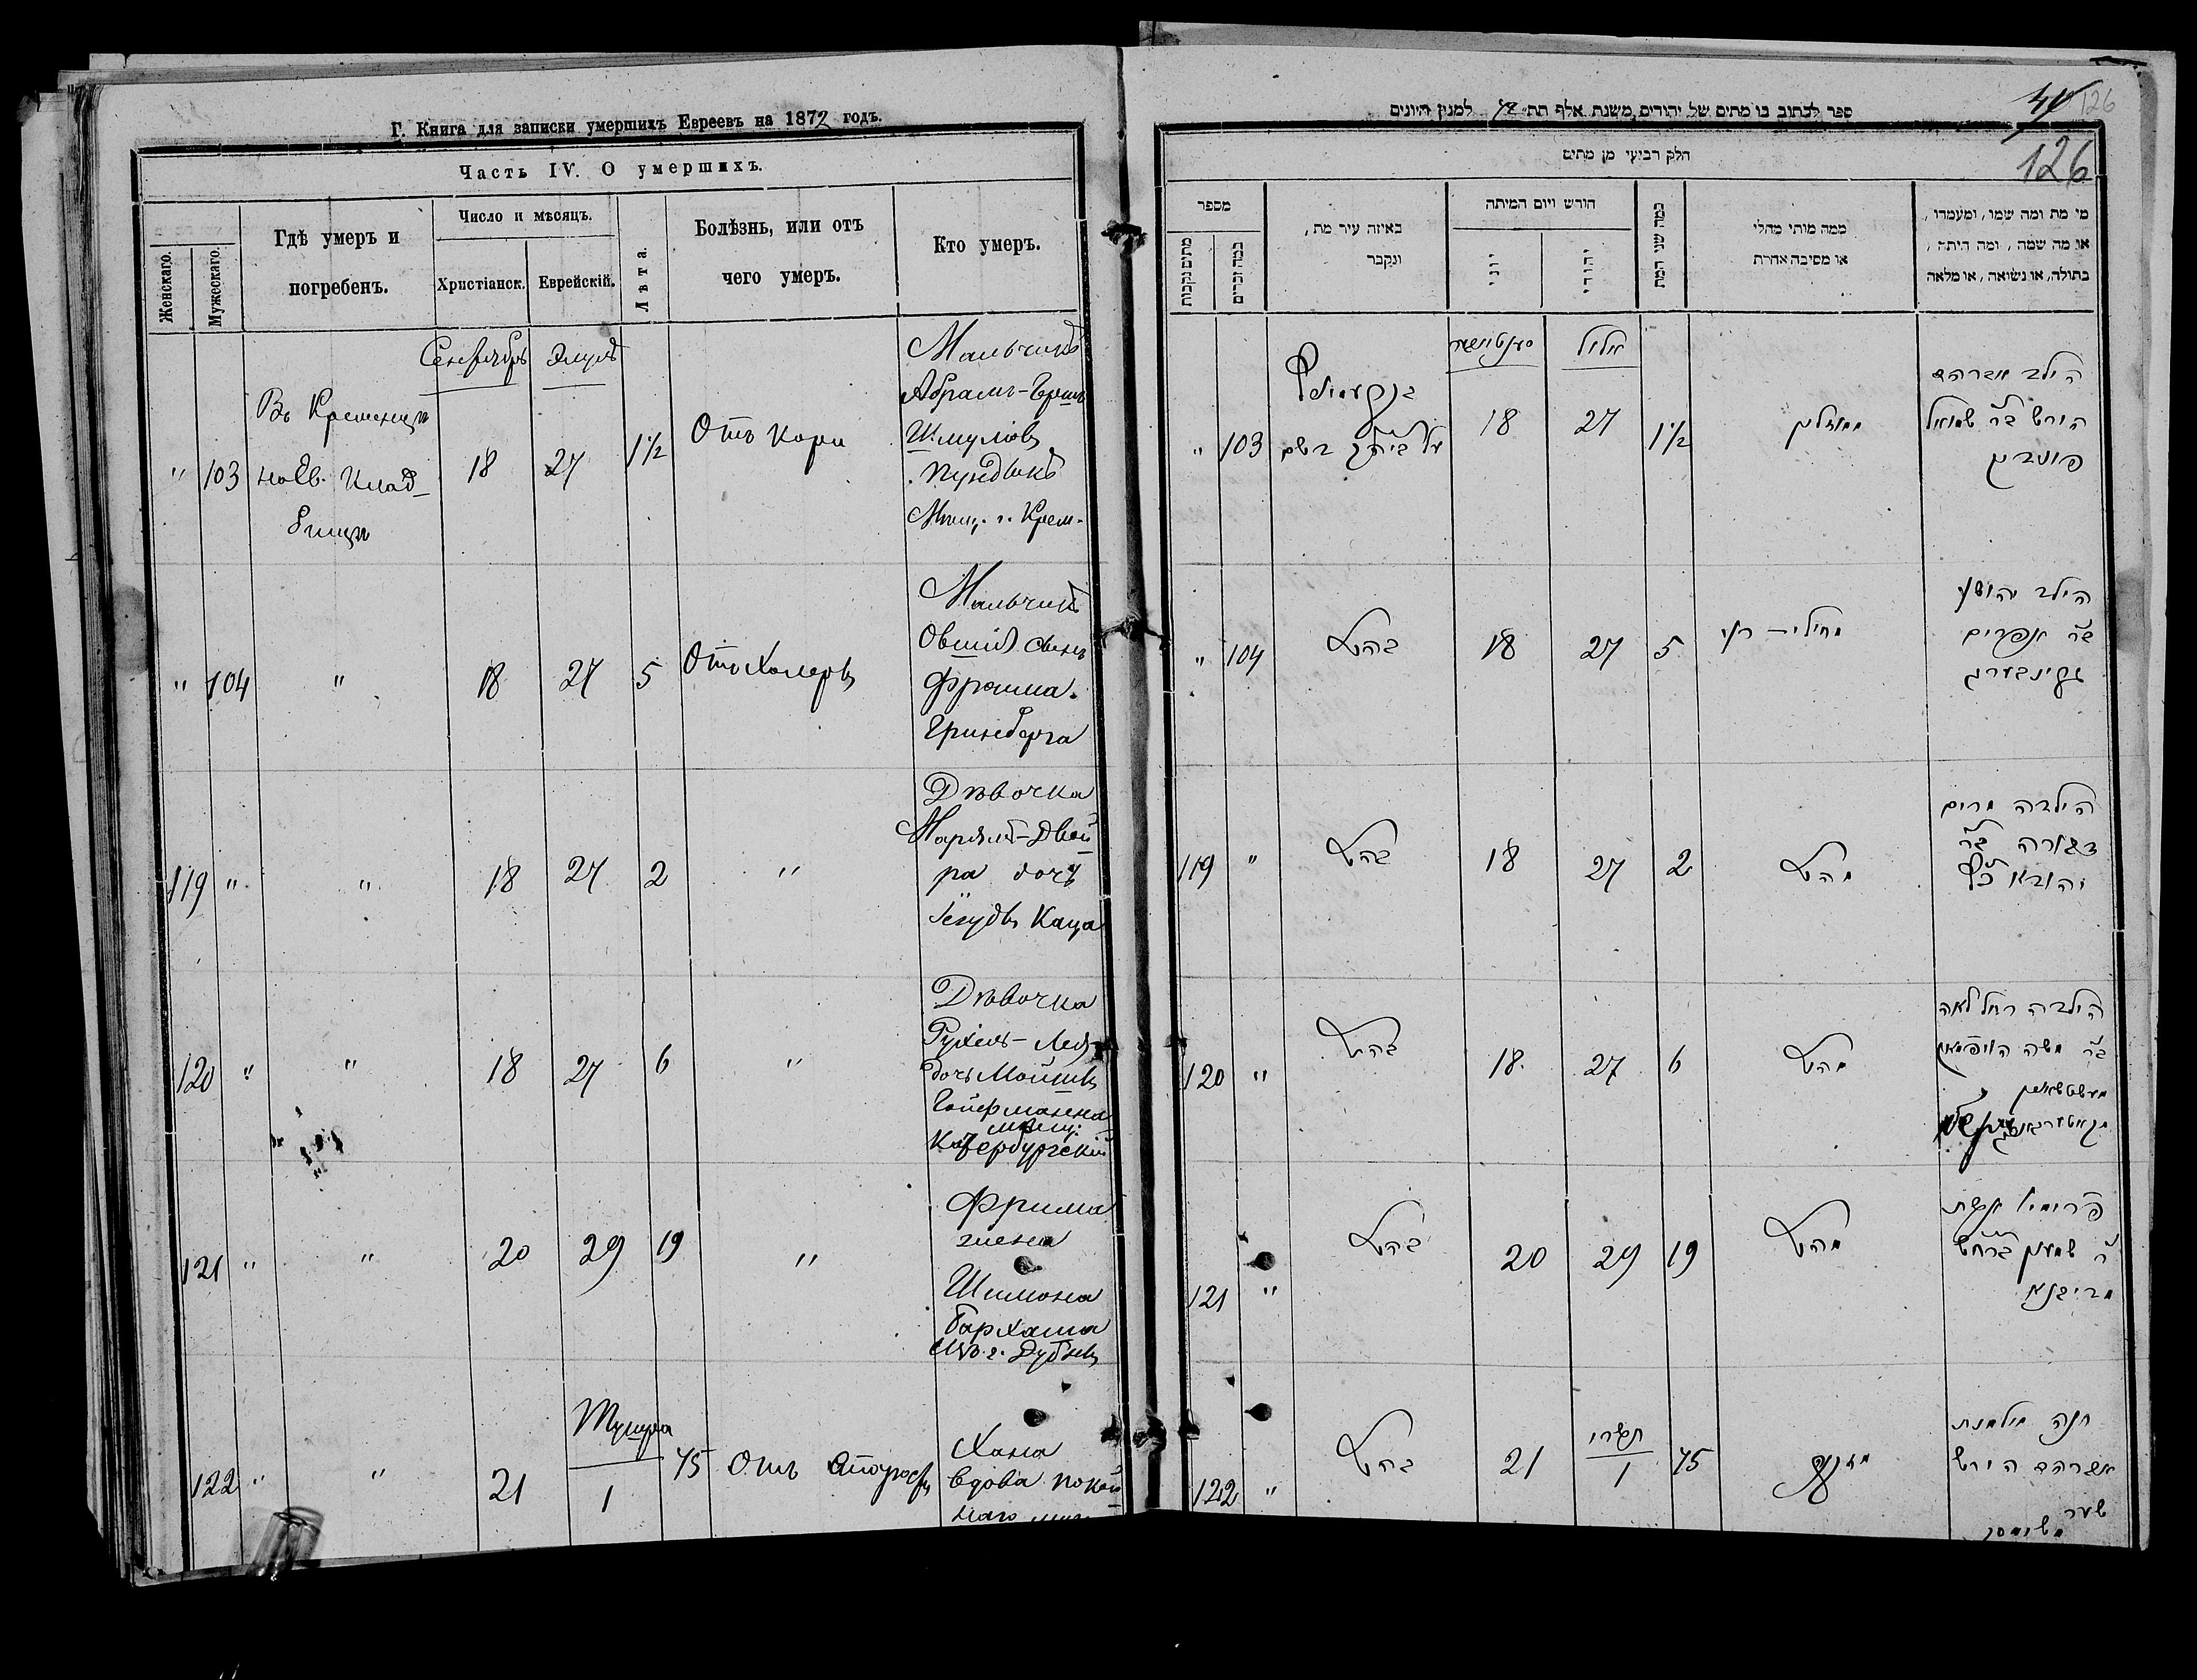 Г. Книга для записки умершихъ Евреевъ на 1872 годъ.
Часть IV. О умершихъ.
Женскаго.
Мужескаго.
Гдѣ умеръ и
погребенъ.
Число и мѣсяцъ.
Христіанск.
Еврейскій.
Лѣта.
Болѣзнь, или отъ
чего умеръ.
Кто умеръ.
Сентябрь Элуля
" 103
Въ Кременцѣ
на Ев. Клад-
бищѣ
18 27 1½
Отъ Кори
Мальчикъ
Абрамъ-Гершъ
Шмулiовъ
Пундыкъ
Мѣщ. г. Крем.
" 104 " 18 27 5
Отъ Холеры
Мальчикъ
Овшія сынъ
Фроима
Гринберга
119 " " 18 27 2 "
Дѣвочка
Марямъ-Двой
ра дочь
Іегуды Каца
120 " " 18 27 6 "
Дѣвочка
Рухель-Лея
дочь Мошка
Гойфмана
мѣщ.
Катербургскій
121 " " 20 29 19 "
Фрима
жена
Шимона
Бархаша
мѣщ. г. Дубны
122 " " 21
Тишра
1
75 Отъ старости
Хана
вдова покой
наго
ספר לכתוב בו מתים של יהודים משנת אלף תת" 72 למנין היונים
126
126
חלק רביעי מן מתים
מספר
מתים נקבות
כמה זכרים
באיזה עיר מת,
ונקבר
חודש ויום המיתה
יוני
יהודי
כמה שני המת
ממה מותו מחלי
או מסיבה אחרת
מי מת ומה שמו, ומעמדו,
או מה שמה, ומה היתה,
בתולה, או נשואה, או מלאה
אילול
" 103
18 27 1½
הילד אברהם
הירש ב"ר שמואל
פונדיק
" 104 18 27 5
הילד יהושע
ב"ר אפרים
גרינבערג
119 " 18 27 2
הילדה מרים
דבורה ב"ר
יהודא כ"ץ
120 " 18 27 6
הילדה רחל לאה
ב"ר משה הויפמאן
121 " 20 29 19
פרימא אשת
ר' שמעון ברחש
מדובנא
תשרי
122 " 21 1 75
מזקנה
חנה אלמנת
אברהם הירש